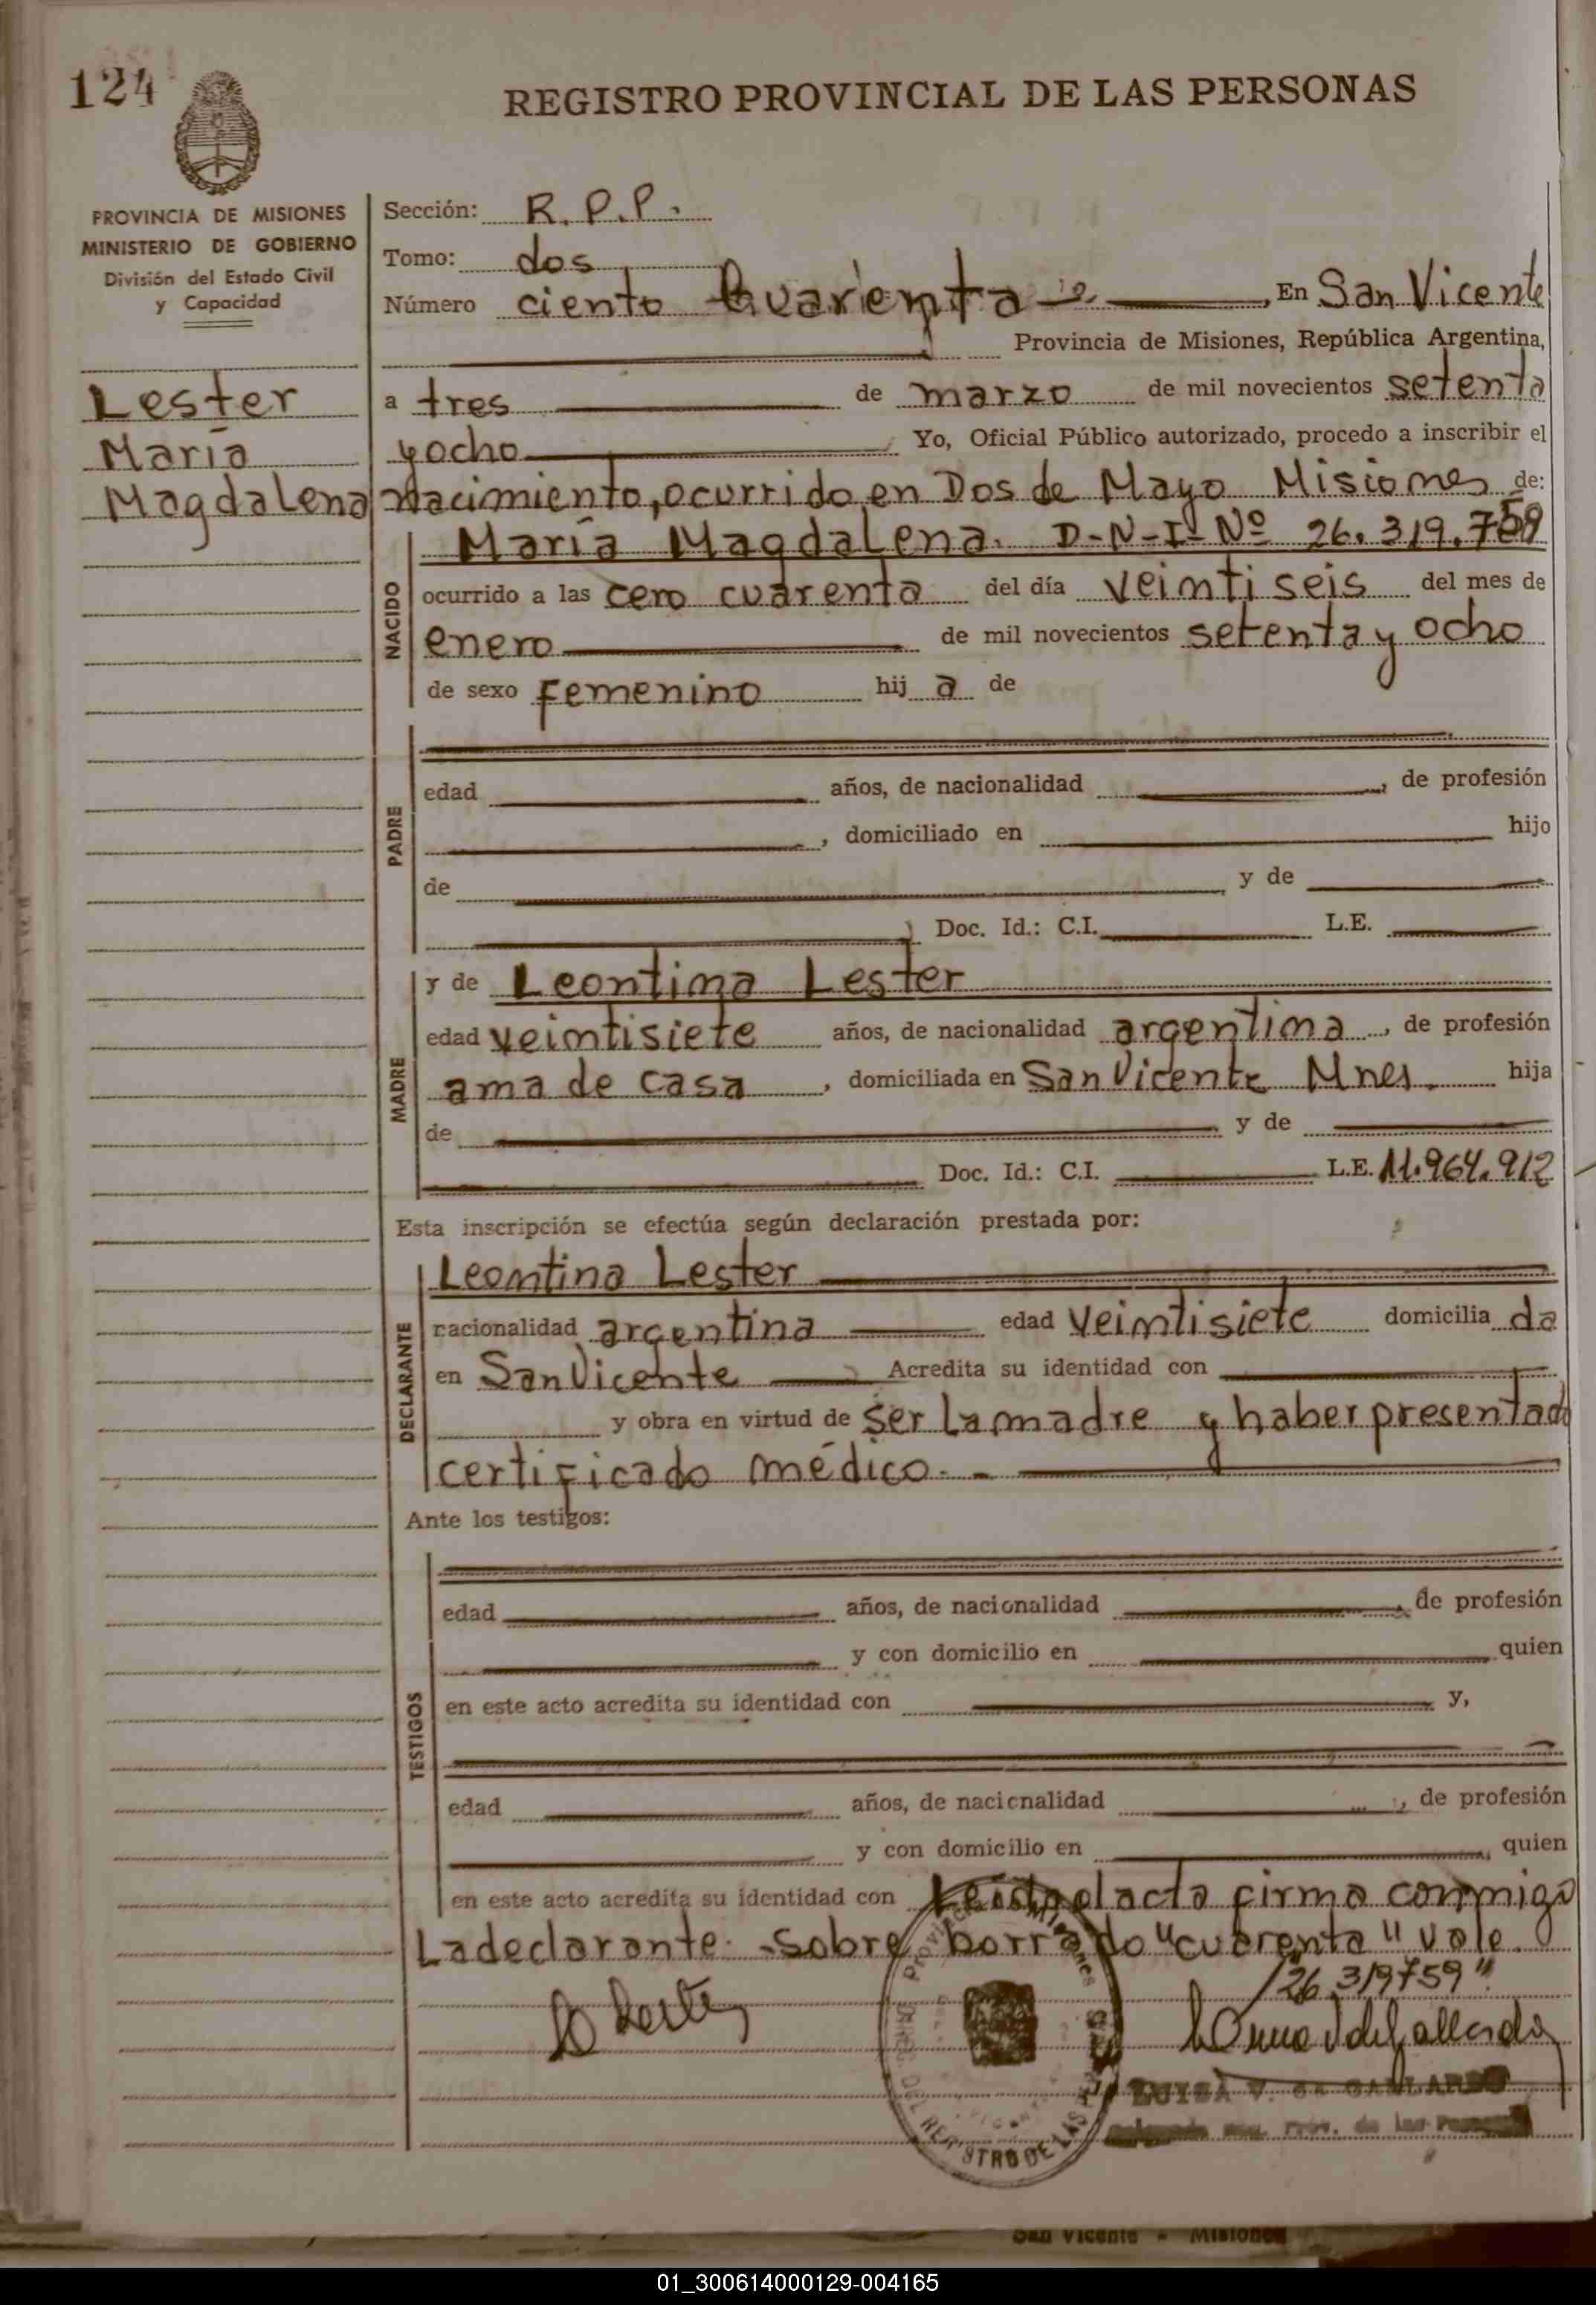 124
REGISTRO PROVINCIAL DE LAS PERSONAS
PROVINCIA DE MISIONES
MINISTERIO DE GOBIERNO
División del Estado Civil
y Capacidad
Lester
María
Magdalena
Sección: R.P.P.
Tomo: dos
Número ciento Cuarenta , En San Vicente
Provincia de Misiones, República Argentina,
a tres de marzo de mil novecientos setenta
y ocho Yo, Oficial Público autorizado, procedo a inscribir el
nacimiento, ocurrido en Dos de Mayo Misiones de:
NACIDO
María Magdalena. D-N-I-Nº 26.319.759
ocurrido a las cero cuarenta del día veinti seis del mes de
enero de mil novecientos setenta y ocho
de sexo femenino hij a de
PADRE
edad años, de nacionalidad , de profesión
, domiciliado en hijo
de y de
Doc. Id.: C.I. L.E.
MADRE
y de Leontina Lester
edad veintisiete años, de nacionalidad argentina , de profesión
ama de casa , domiciliada en San Vicente Mnes. hija
de y de
Doc. Id.: C.I. L.E. 11.964.912
Esta inscripción se efectúa según declaración prestada por:
DECLARANTE
Leontina Lester
nacionalidad argentina edad veintisiete domicilia da
en San Vicente Acredita su identidad con
y obra en virtud de ser la madre y haber presentado
certificado médico.-
Ante los testigos:
TESTIGOS
edad años, de nacionalidad , de profesión
y con domicilio en quien
en este acto acredita su identidad con y,
edad años, de nacionalidad , de profesión
y con domicilio en , quien
en este acto acredita su identidad con Leida el acta firma conmigo
La declarante. -Sobre borrado "cuarenta" vale.
"26.319759"
LUISA V. de GALLARDO
Prov. de las
REGISTRO DE LAS
San Vicente - Misiones
01_300614000129-004165